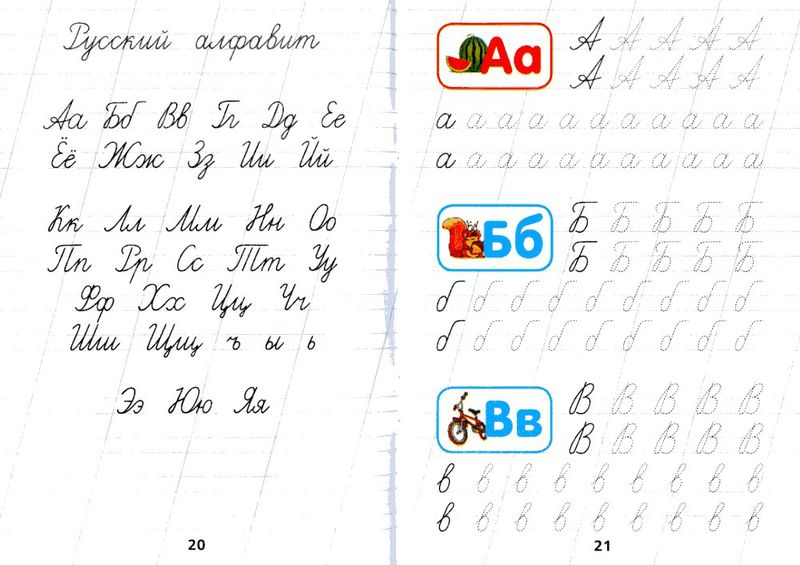 Русский алфавит
Аа Бб Вв Гг Дд Ее
Ёё Жж Зз Ии Йй
Кк Лл Мм Нн Оо
Пп Рр Сс Тт Уу
Фф Хх Цц Чч
Шш Щщ ъ ы ь
Ээ Юю Яя
20
Аа
А А А А А
А А А А А
а а а а а а а а а а а
а а а а а а а а а а а
Бб
Б Б Б Б Б
Б Б Б Б Б
б б б б б б б б б б
б б б б б б б б б б
Вв
В В В В В
В В В В В
в в в в в в в в в
в в в в в в в в в
21